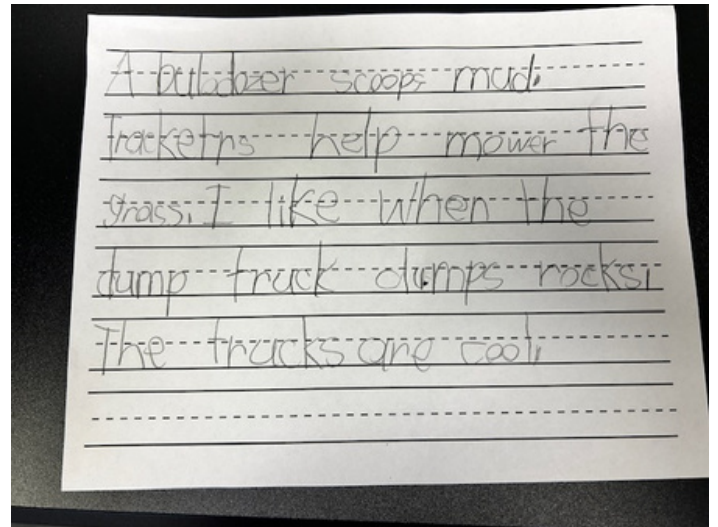 A bulldozer scoops mud.
tracketrs help mower the
grass. I like when the
dump truck dumps rocks.
The trucks are cool.